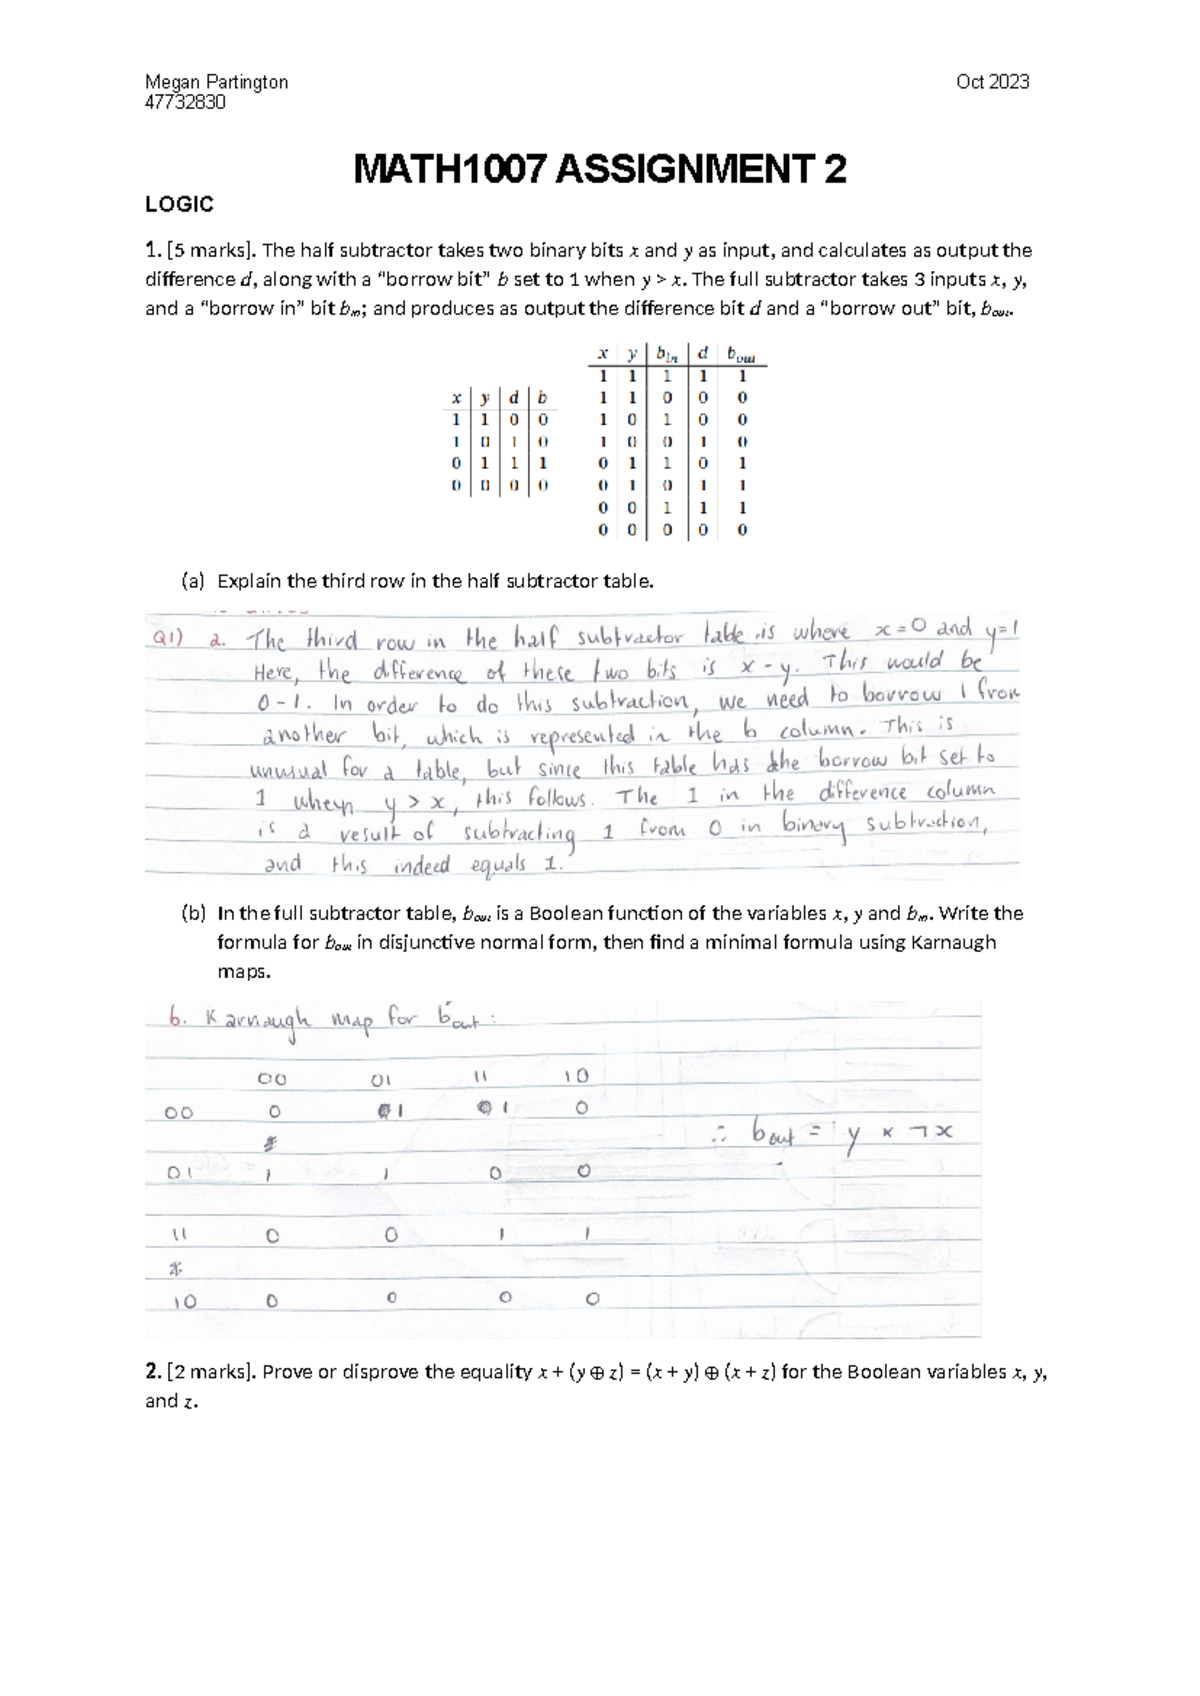 Megan Partington Oct 2023
47732830
MATH1007 ASSIGNMENT 2
LOGIC
1. [5 marks]. The half subtractor takes two binary bits x and y as input, and calculates as output the
difference d, along with a “borrow bit” b set to 1 when y > x. The full subtractor takes 3 inputs x, y,
and a “borrow in” bit bin; and produces as output the difference bit d and a “borrow out” bit, bout.
x y d b
1 1 0 0
1 0 1 0
0 1 1 1
0 0 0 0
x y bin d bout
1 1 1 1 1
1 1 0 0 0
1 0 1 0 0
1 0 0 1 0
0 1 1 0 1
0 1 0 1 1
0 0 1 1 1
0 0 0 0 0
(a) Explain the third row in the half subtractor table.
Q1) a. The third row in the half subtractor table is where x=0 and y=1
Here, the difference of these two bits is x-y. This would be
0-1. In order to do this subtraction, we need to borrow 1 from
another bit, which is represented in the b column. This is
unusual for a table, but since this table has the borrow bit set to
1 when y > x, this follows. The 1 in the difference column
is a result of subtracting 1 from 0 in binary subtraction,
and this indeed equals 1.
(b) In the full subtractor table, bout is a Boolean function of the variables x, y and bin. Write the
formula for bout in disjunctive normal form, then find a minimal formula using Karnaugh
maps.
b. Karnaugh map for bout:
00 01 11 10
00 0 1 1 0
∴ bout = y × ¬x
01 1 1 0 0
11 0 0 1 1
10 0 0 0 0
2. [2 marks]. Prove or disprove the equality x + (y ⊕ z) = (x + y) ⊕ (x + z) for the Boolean variables x, y,
and z.